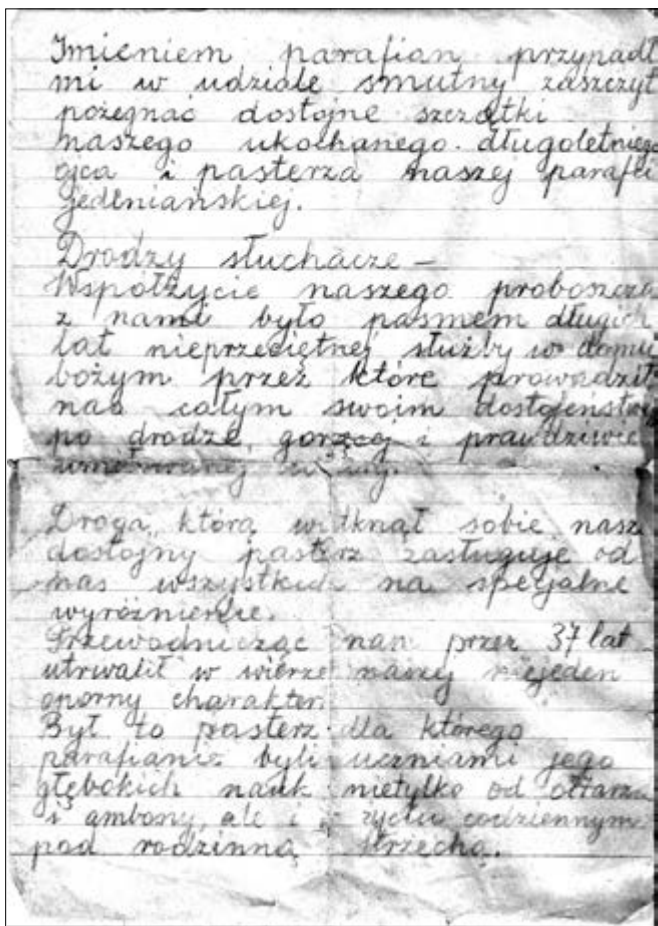 Imieniem parafian przypadł
mi w udziale smutny zaszczyt
pożegnać dostojne szczątki
naszego ukochanego długoletniego
ojca i pasterza naszej parafii
jedlniańskiej.
Drodzy słuchacze –
Współżycie naszego proboszcza
z nami było pasmem długich
lat nieprzeciętnej służby w domu
bożym przez które prowadził
nas całym swoim dostojeństwem
po drodze, gorącej i prawdziwie
umiłowanej
Droga, którą wytknął sobie nasz
dostojny pasterz zasługuje od
nas wszystkich na specjalne
wyróżnienie.
Przewodnicząc nam przez 37 lat
utrwalił w wierze naszej niejeden
oporny charakter.
Był to pasterz dla którego
parafianie byli uczniami jego
głębokich nauk nietylko od ołtarza
i ambony, ale i życiu codziennym
pod rodzinną strzechą.